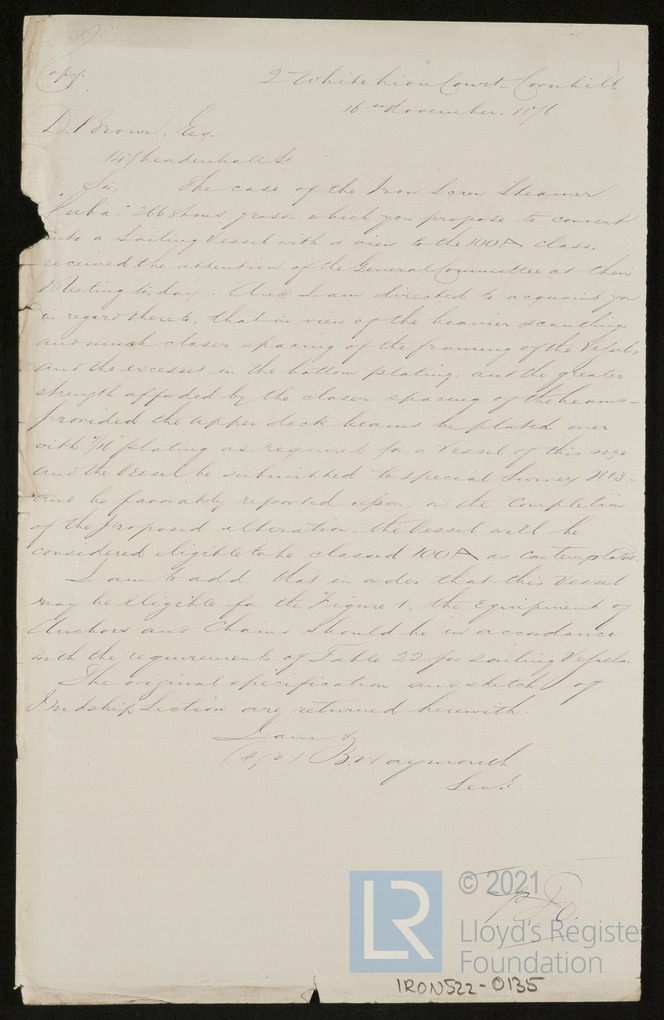 Copy.
2 White Lion Court Cornhill
16th November. 187
D. Brown, Esq.
Leadenhall St
Sir, The case of the Iron Screw Steamer
"Cuba" 2668 tons gross which you propose to convert
into a Sailing Vessel with a view to the 100A class,
received the attention of the General Committee at their
Meeting to-day. And I am directed to acquaint you
in regard thereto, that in view of the heavier scantlings
and much closer spacing of the framing of the Vessel,
and the excesses in the bottom plating, and the greater
strength afforded by the closer spacing of the beams -
provided the upper deck beams be plated over
with /16 plating as required for a Vessel of this size
and the Vessel be submitted to Special Survey No 3 -
and be favorably reported upon, on the completion
of the proposed alteration, the Vessel will be
considered eligible to be classed 100A as contemplated.
I am to add that in order that this Vessel
may be eligible for the Figure 1, the Equipment of
Anchors and Chains should be in accordance
with the requirements of Table 22 for Sailing Vessels.
The original specification and sketch of
Midship Section are returned herewith.
I am &
(Sgd) B. Waymouth
Secy.
© 2021
LR
Lloyd's Register
Foundation
IRON522-0135